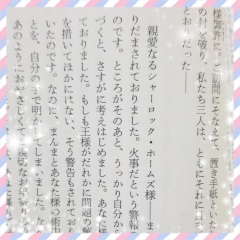 様
訪問にそなえて、置き手紙
の封を破り、私たち三人は、とくにそれに目
とおりだった――
親愛なるシャーロック・ホームズ様――ま
りだまされておりました。火事だという警報
のです。ところがそのあと、うっかり自分か
づくと、さすがに考えはじめました。あなた
ておりました。もしも王様がだれかに問題の解
を措いてほかにはない、そう警告もされており
いたのです。なのに、まんまとあなた様の術中
とを、自分の手で明かしてしまいました。
あのようにおやさしくて、親切なお